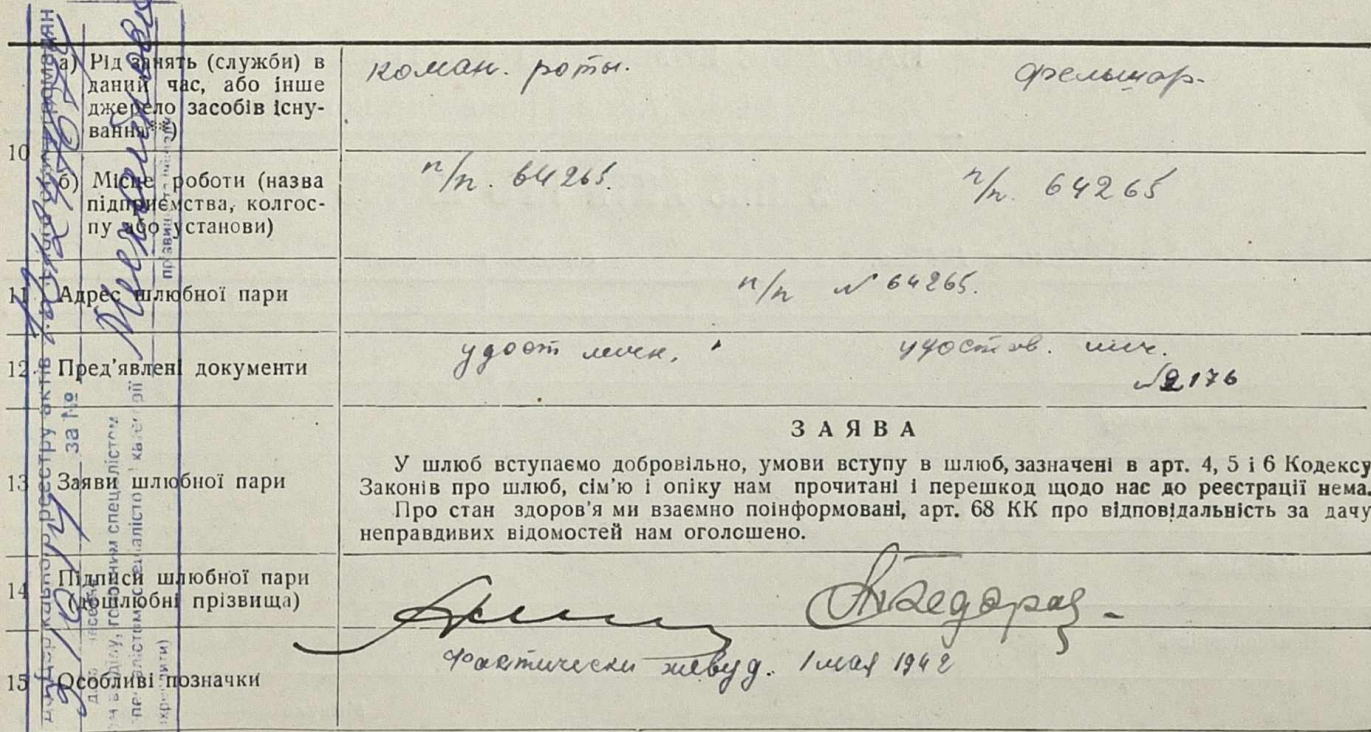 а) Рід занять (служби) в
даний час, або інше
джерело засобів існу-
вання**)
коман. роты.
фельшар.
10
б) Місце роботи (назва
підприємства, колгос-
пу або установи)
п/п. 64265.
п/п. 64265
11 Адрес шлюбної пари
п/п № 64265.
12 Пред'явлені документи
удост личн.
удостов. лич.
№2176
13 Заяви шлюбної пари
ЗАЯВА
У шлюб вступаємо добровільно, умови вступу в шлюб, зазначені в арт. 4, 5 і 6 Кодексу
Законів про шлюб, сім'ю і опіку нам прочитані і перешкод щодо нас до реєстрації нема.
Про стан здоров'я ми взаємно поінформовані, арт. 68 КК про відповідальність за дачу
неправдивих відомостей нам оголошено.
14 Підписи шлюбної пари
(дошлюбні прізвища)
15 Особливі позначки
фактически живу д. 1 мая 1942
реєстру актів
за №
спеціалістом